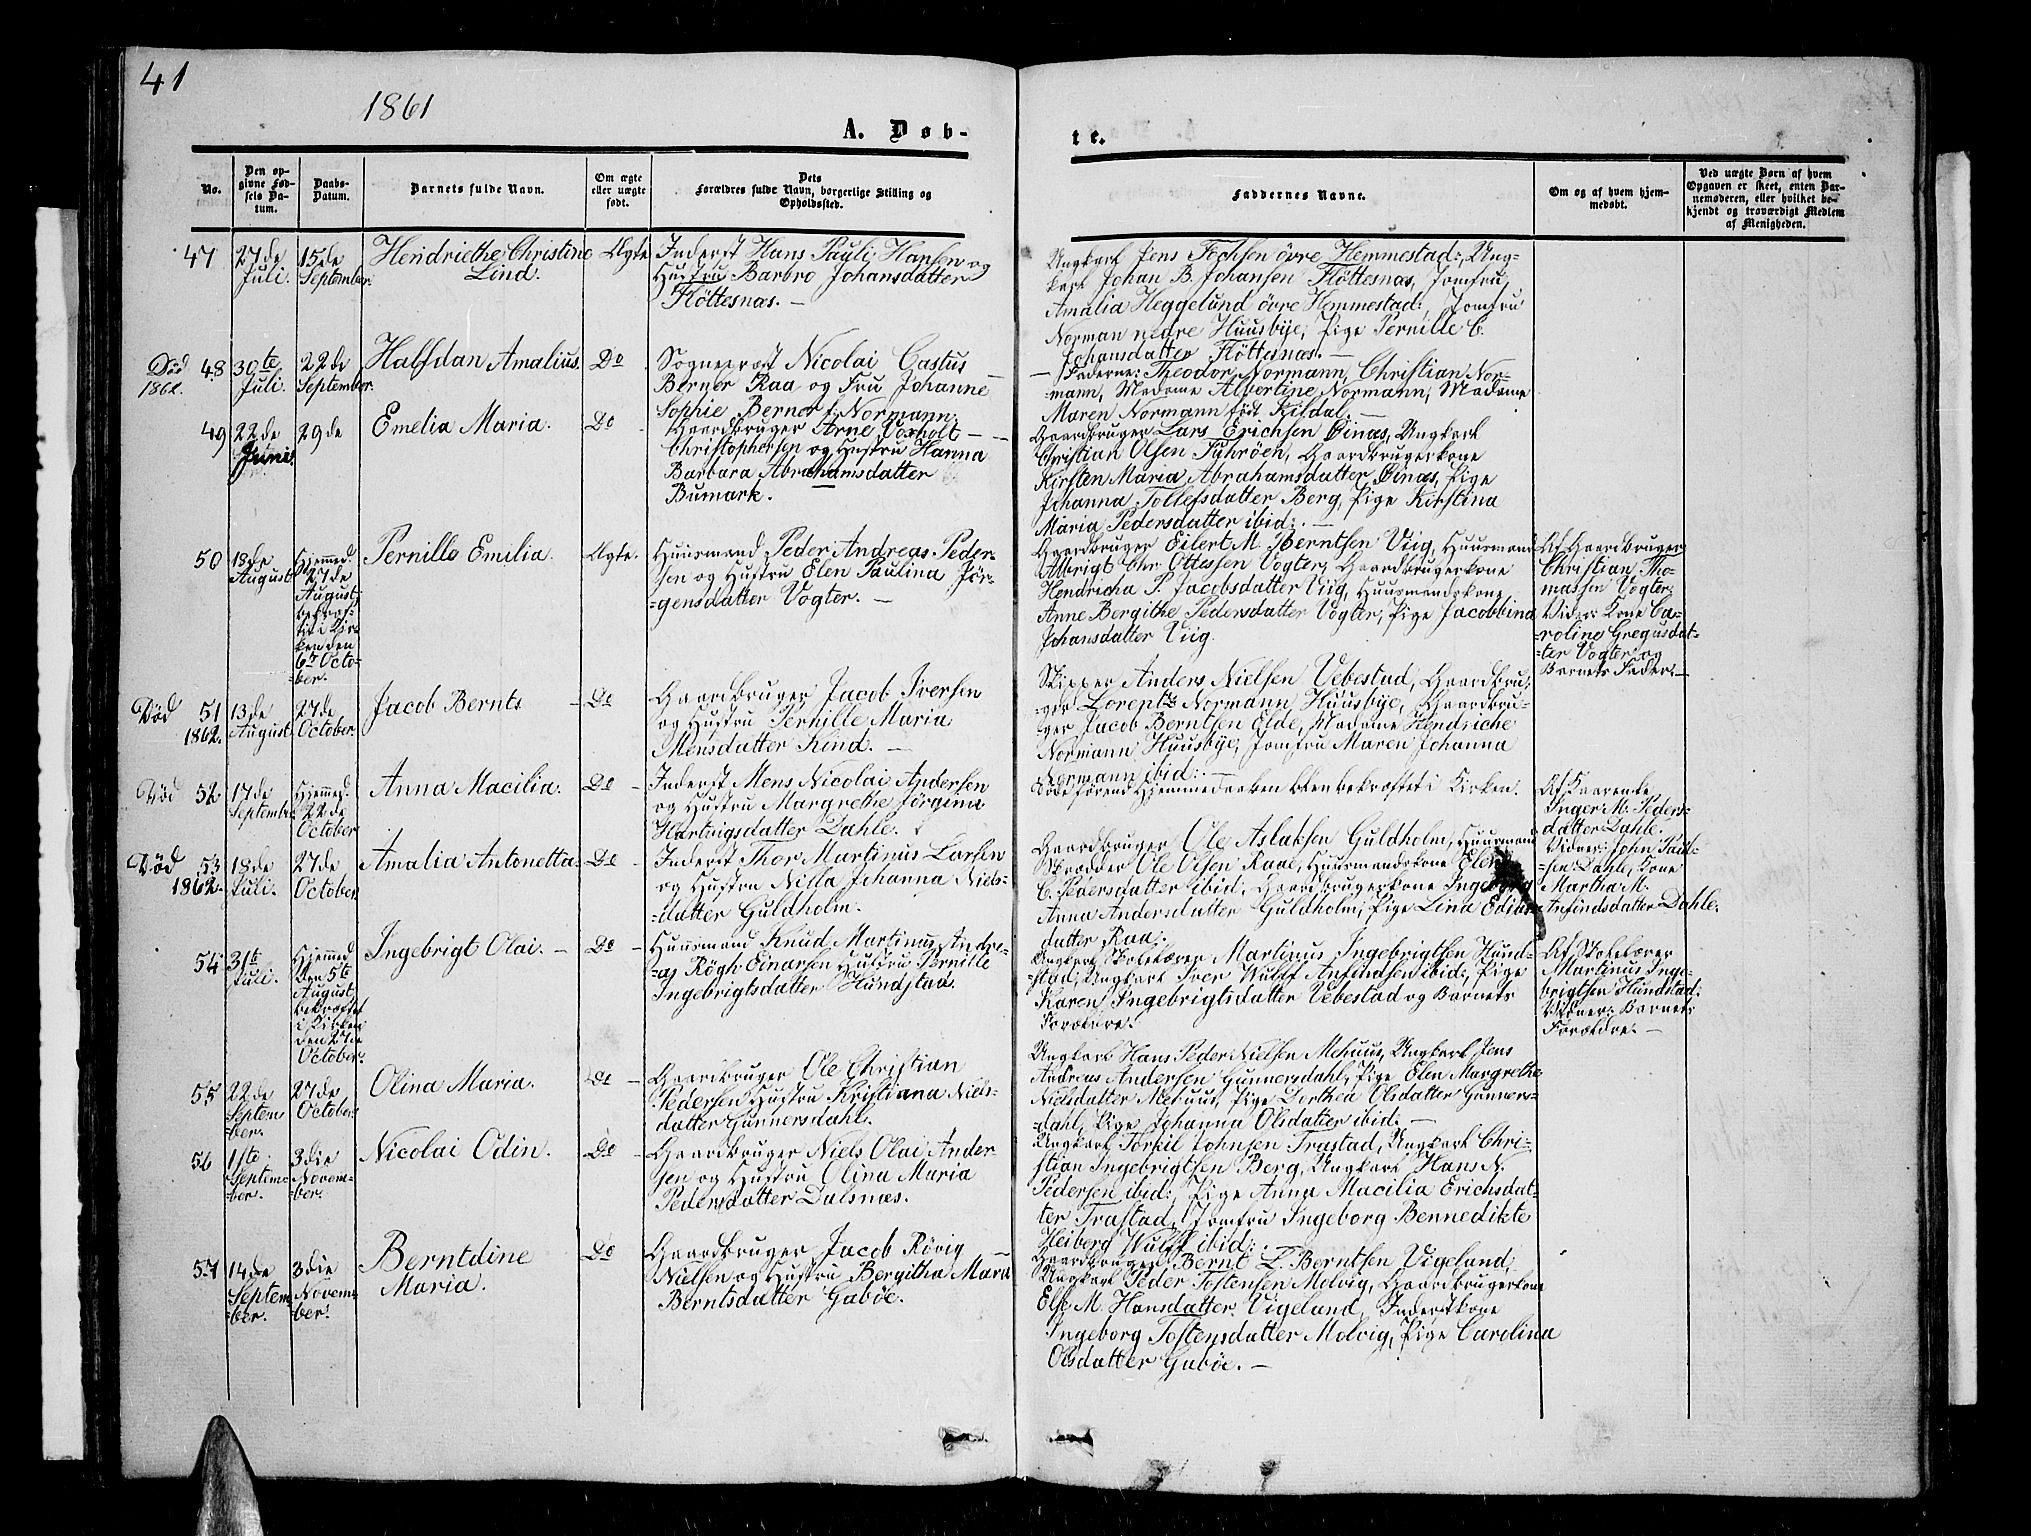 41
1861
A. Døb-
te.
No.
Den op-
givne Fød-
sels Da-
tum.
Daabs-
Datum.
Barnets fulde Navn.
Om ægte
eller uægte
født.
Dets
Forældres fulde Navn, borgerlige Stilling og
Opholdssted.
Faddernes Navne.
Om og af hvem hjem-
medøbt.
Ved uægte Børn af hvem
Opgaven er skeet, enten Bar-
nemoderen, eller hvilket be-
kjendt og troværdigt Medlem
af Menigheden.
47
27de
Juli.
15de
September.
Hendriethe Christine
Lind.
Ægte
Inderst Hans Pauli Hansen og
Hustru Barbro Johansdatter
Fløttesnæs. —
Ungkarl Jens Fochsen övre Hemmestad:, Ung-
karl Johan B. Johansen Flöttesnæs, Jomfru
Amalia Heggelund övre Hemmestad:, Jomfru
Norman nedre Huusbÿe, Pige Pernille C.
Johansdatter Flöttesnæs. —
Død
1862.
48
30te
Juli.
22de
September.
Halfdan Amalius.
Do
Sogneprest Nicolai Castus
Berner Raa og Fru Johanne
Sophie Berner f. Normann.
— Faderne: Theodor Normann, Christian Nor-
=mann, Madame Albertine Normann, Madame
Maren Normann født Kildal. —
49
22de
Juni.
29de
Emelia Maria.
Do
Gaardbruger Arne Voxholt —
Christophersen og Hustru Hanna
Barbara Abrahamsdatter
Bumark.
Gaardbruger Lars Erichsen Öinæs, Ungkarl
Christian Olsen Fuhröen, Gaardbrugerkone
Kirsten Maria Abrahamsdatter Öinæs, Pige
Johanna Tollefsdatter Berg, Pige Kirstina
Maria Pedersdatter ibid:. —
50
18de
August
Hjemmed.
27de
August
bekræf-
tet i Kir-
ken den
6te Octo-
=ber.
Pernille Emilia.
Ægte.
Huusmand Peder Andreas Peder-
sen og Hustru Elen Paulina Jör-
=gensdatter Vogter. —
Gaardbruger Eilert M. Berntsen Viig, Huusmand
Albrigt Chr. Ottessen Vogter, Gaardbrugerkone
Hendricha P. Jacobsdatter Viig, Huusmandskone
Anne Bergithe Pedersdatter Vogter, Pige Jacobbina
Johansdatter Viig.
Af Gaardbruger
Christian Tho-
massen Vogter.
Vidner: Kone Ca-
roline Gregusdat-
=ter Vogter og
Barnets Fader. —
Död
1862.
51
13de
August
27de
October.
Jacob Bernts
Do
Gaardbruger Jacob Iversen
og Hustru Pernille Maria
Monsdatter Kind. —
Skipper Anders Nielsen Vebestad, Gaardbru-
=ger Lorents Normann Huusbÿe, Gaardbru-
ger Jacob Berntsen Elde, Madame Hendriche
Normann Huusbÿe, Jomfru Maren Johanna
Normann ibid:. —
Död
52
17de
September
Hjemmed.
22de
October
Anna Macilia.
Do
Inderst Mons Nicolai Andersen
og Hustru Margrethe Jörgina
Hartvigsdatter Dahle.
Döde förend Hjemmedaaben blev bekræftet i Kirken.
Inger M. Peders-
datter Dahle.
Vidner: John
Dahle, Kone
Martha M.
Anfindsdatter Dahle.
Död
1862.
53
18de
Juli.
27de
October
Amalia Antonetta.
Do
Inderst Thor Martinus Larsen
og Hustru Nilla Johanna Niels-
=datter Guldholm.
Gaardbruger Ole Aslaksen Guldholm, Huusmand
Skrædder Ole Olsen Raae, Huusmandskone Elen
C. Pedersdatter ibid, Gaardbrugerkone Ingeborg
Anna Andersdatter Guldholm, Pige Lina
datter Raa:
54
31te
Juli.
Hjemmed
den 5te
August
bekræftet
i Kirken
den 27de
October.
Ingebrigt Olai. —
Do
Huusmand Knud Martinus Andre-
=as Rögh Einarsen Hustru Pernille
Ingebrigtsdatter Hundstad.
Ungkarl Skolelærer Martinus Ingebrigtsen Hund-
=stad, Ungkarl Iver Wulff Anfindsen ibid:, Pige
Karen Ingebrigtsdatter Vebestad og Barnets
Forældre.
Af Skolelærer
Martinus Inge-
brigtsen Hundstad:
Vidner: Barnets
Forældre. —
55
22de
Septem
=ber.
27de
October.
Olina Maria.
Do
Gaardbruger Ole Christian
Pedersen Hustru Kristianna Niels-
datter Gunnersdahl.
Ungkarl Hans Peder Nielsen Mehuus, Ungkarl Jens
Andreas Andersen Gunnersdahl, Pige Elen Margrethe
Nielsdatter Mehuus, Pige Dorthea Olsdatter Gunners-
=dahl, Pige Johanna Olsdatter ibid: —
56
1ste
Septem-
=ber.
3die
Novem-
=ber.
Nicolai Odin.
Do
Gaardbruger Niels Olai Ander-
sen og Hustru Olina Maria
Pedersdatter Dalsnæs.
Ungkarl Torkil Johnsen Trastad, Ungkarl Chri-
stian Ingebrigtsen Berg, Ungkarl Hans N.
Pedersen ibid:, Pige Anna Macilia Erichsdat-
ter Trastad, Jomfru Ingeborg Bennedikte
Heiberg Wulff ibid:.
57
14de
Septem
=ber.
3die
Novem-
=ber.
Berntdine
Maria.
Do
Gaardbruger Jacob Rövig —
Nielsen og Hustru Bergitha Mara
Berntsdatter Gaböe.
Gaardbruger Bernt L. Berntsen Vigeland,
Ungkarl Peder Tostensen Molvig, Gaardbrugerkone
Else M. Hansdatter Vigeland, Inderstkone
Ingeborg Tostensdatter Molvig, Pige Carolina
Olsdatter Gaböe. —